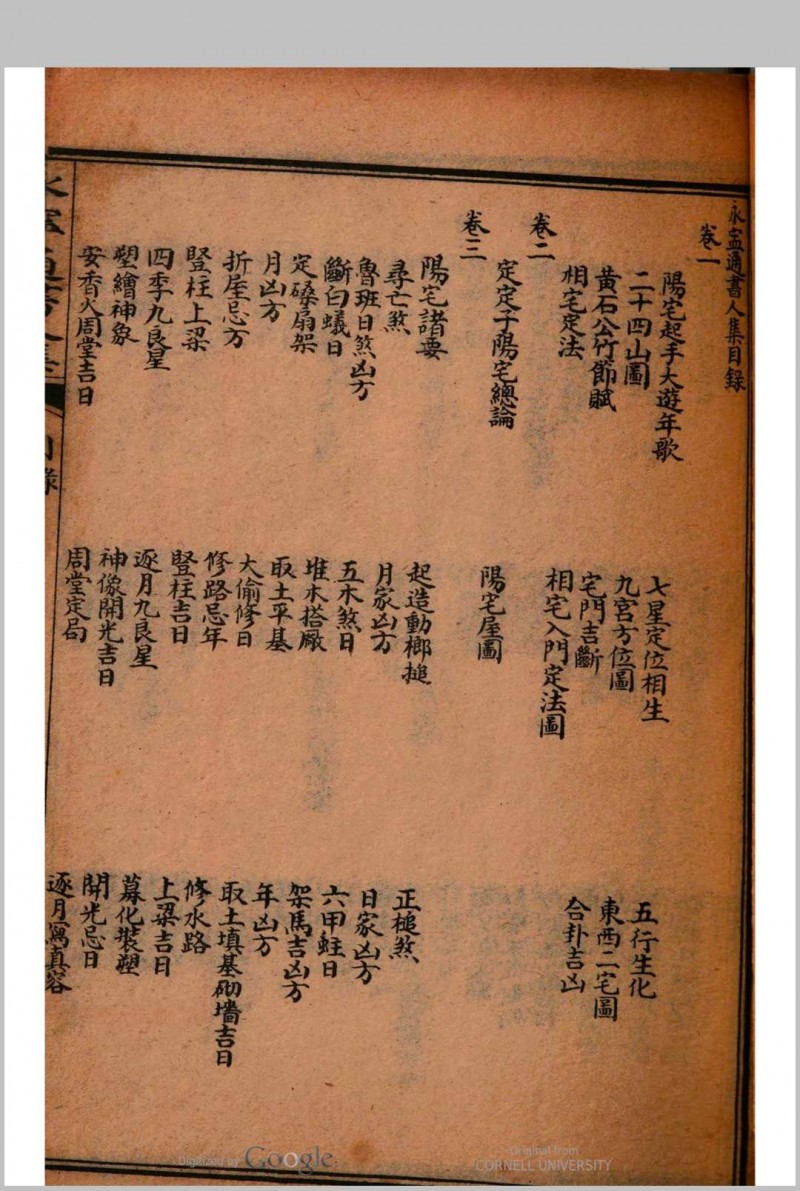 永寍通書人集目錄
卷一
陽宅起手大遊年歌
七星定位相生
五行生化
二十四山圖
九宮方位圖
東西二宅圖
黃石公竹節賦
宅門吉斷
合卦吉凶
相宅定法
相宅入門定法圖
卷二
定定子陽宅總論
陽宅屋圖
卷三
陽宅諸要
起造動榔槌
正槌煞
尋亡煞
月家凶方
日家凶方
魯班日煞凶方
五木煞日
六甲蛀日
斷白蟻日
堆木搭厰
架馬吉凶方
定磉扇架
取土平基
年凶方
月凶方
大偷修日
取土填基砌墻吉日
折屋忌方
修路忌年
修水路
竪柱上梁
竪柱吉日
上梁吉日
四季九良星
逐月九良星
募化裝塑
塑繪神象
神像開光吉日
開光忌日
安香火周堂吉日
周堂定局
逐月寫真容
目錄
Digitized by Google
Original from
CORNELL UNIVERSITY